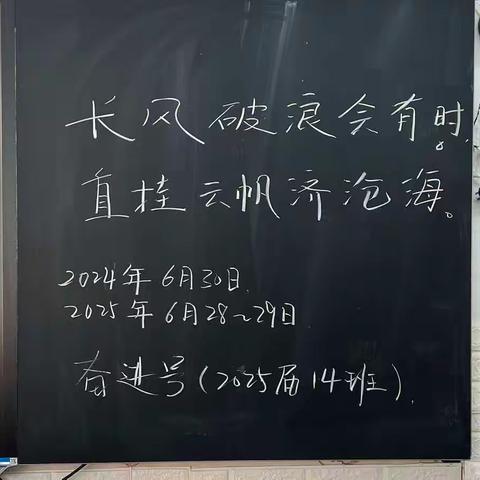 长风破浪会有时,
直挂云帆济沧海。
2024年6月30日.
2025年6月28~29日
奋进号(2025届14班).